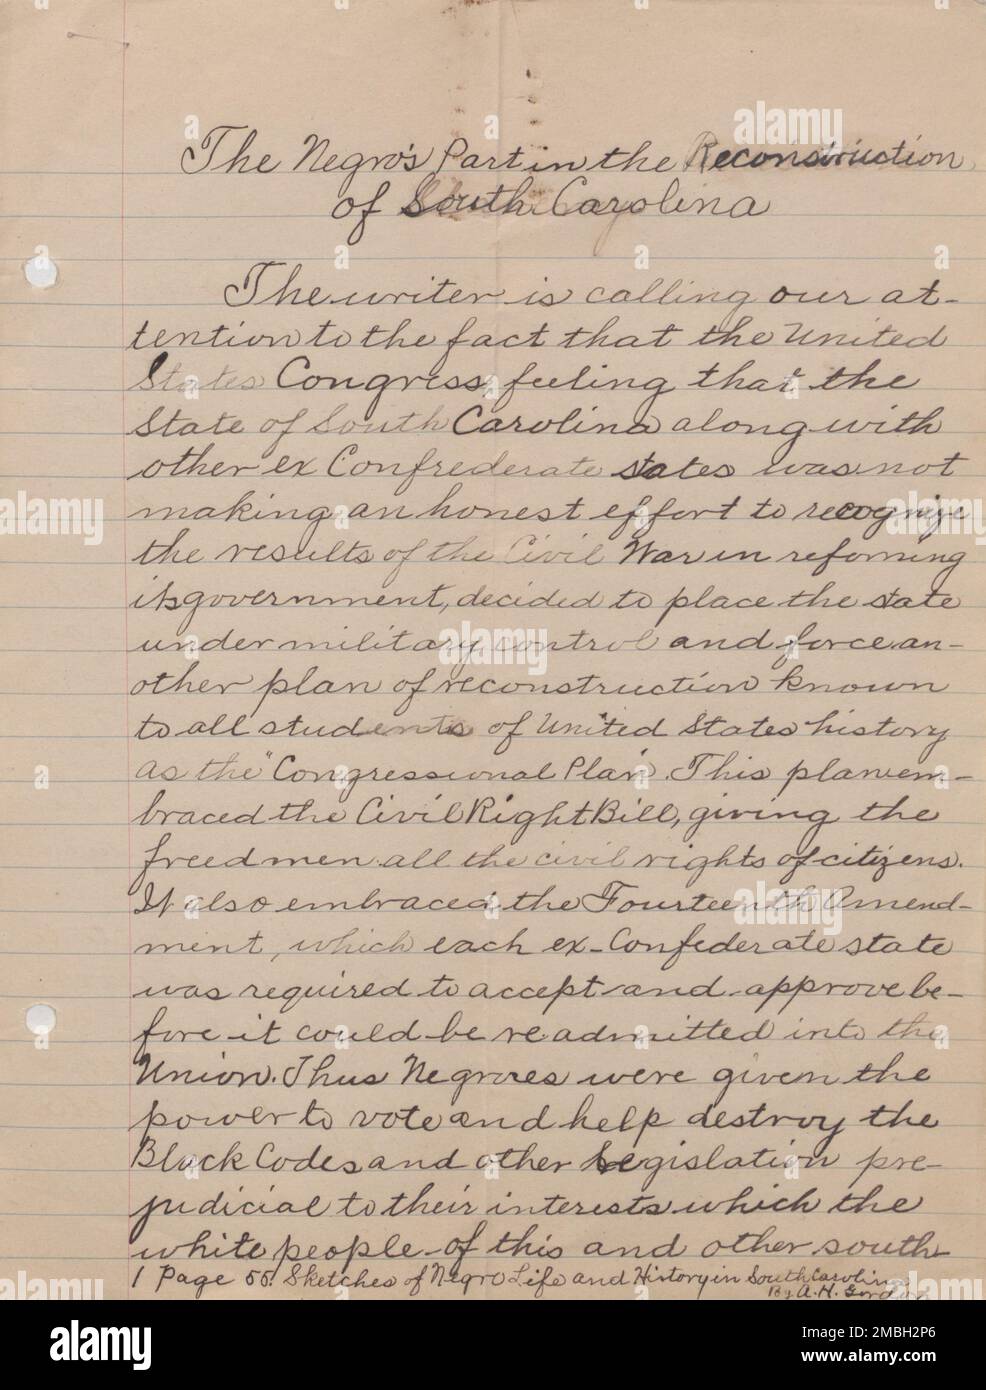 The Negro's Part in the Reconstruction
of South Carolina
The writer is calling our at-
tention to the fact that the United
States Congress, feeling that the
State of South Carolina along with
other ex Confrederate states was not
making an honest effort to recognize
the results of the Civil War in reforming
its government, decided to place the state
under military control and force an-
other plan of reconstruction known
to all students of United States history
as the "Congressional Plan". This plan em-
braced the Civil Right Bill, giving the
freedmen all the civil rights of citizens.
It also embraced the Fourteenth Amend-
ment, which each ex-Confederate state
was required to accept and approve be-
fore it could be readmitted into the
Union. Thus Negroes were given the
power to vote and help destroy the
Black Codes and other legislation pre-
judicial to their interests which the
white people of this and other south-
1 Page 55. Sketches of Negro Life and History in South Carolina
By A.H. Gordon
alamy
Image ID: 2MBH2P6
www.alamy.com